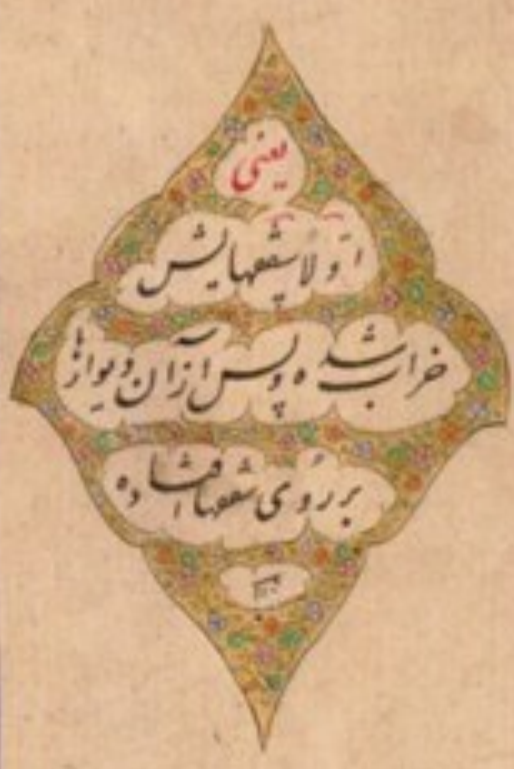 یعنی
اوّلاً سقفهایش
خراب شده و پس از آن دیوارها
بر روی سقفها افتاده